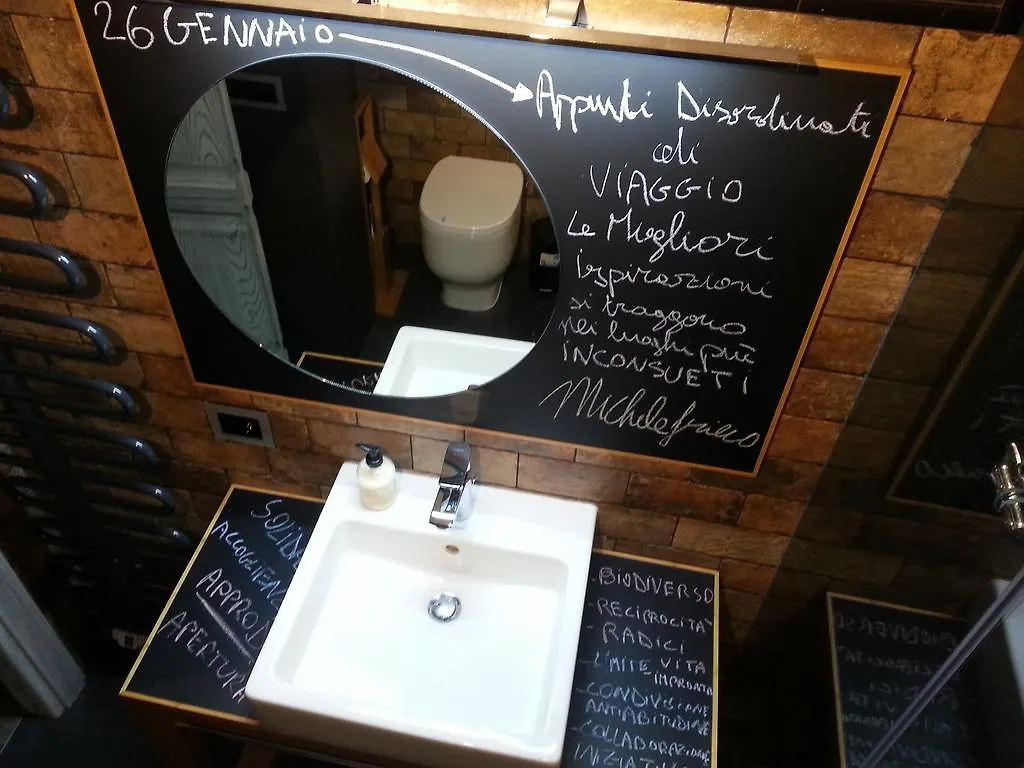 26 GENNAIO
Appunti Disordinati
di
VIAGGIO
Le Migliori
ispirazioni
si traggono
nei luoghi più
INCONSUETI
Michelefrisco
SOLIDA
ACCOGLIENZ
APPROD
APERTURA
-BIODIVERSO
-RECIPROCITA'
-RADICI
-L'MITE VITA
-IMPRONTA
-CONDIVISIONE
ANTIABITUDINE
-COLLABORAZIONE
INIZIATIV